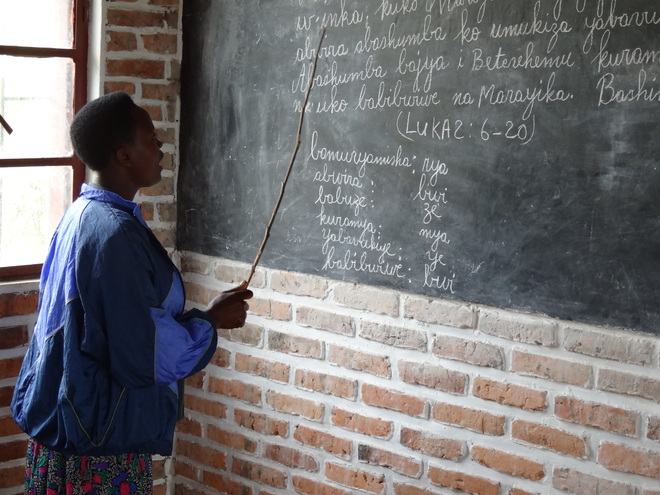 w'inka, kuko Maraya
abwira abashumba ko umukiza yabavu
Abashumba bajya i Beterehemu kuramya
uko babibwiwe na Marayika. Bashi
(LUKA 2: 6-20)
bamuryamisha: rya
abwira: bwi
babuze: ze
kuramya: mya
yabavukiye: ye
babibwiwe: bwi